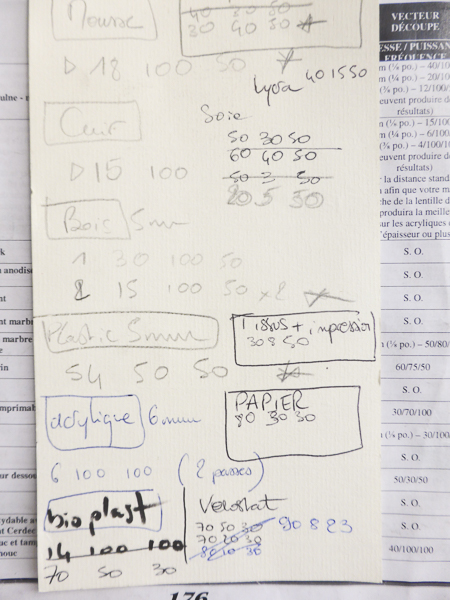 Mousse
40 30 50
30 40 50
D 18 100 50
Lycra 40 15 50
Cuir
D 15 100
Soie
50 30 50
60 40 50
50 3 50
20 5 30
Bois 5mm
1 30 100 50
2 15 100 50 x2
Plastic 5mm
54 50 50
Tissus + impression
30 8 50
acrylique 6mm
6 100 100 (2 passes)
PAPIER
80 30 30
bio plast
14 100 100
70 50 30
Velostat
70 50 30 90 8 23
70 20 30
80 10 30
VECTEUR
DÉCOUPE
ESSE / PUISSAN
FRÉQUENCE
m (⅛ po.) – 40/100
m (¼ po.) – 20/10
(⅜ po.) – 12/100/
euvent produire de
résultats)
m (⅛ po.) – 15/100
m (¼ po.) – 6/100
(⅜ po.) – 4/100/1
euvent produire de
résultats)
la distance stand
afin que votre m
he de la lentille d
produira la meille
ur les acryliques
'épaisseur ou plus
S. O.
S. O.
S. O.
S. O.
po.) – 50/80/
60/75/50
S. O.
30/70/100
po.) – 30/100
S. O.
50/30/50
S. O.
S. O.
40/100/100
anodis
nt
nt marbr
marbre
in
mprimab
ur dessou
ydable av
t Cerdec
ac et tam
houc
176